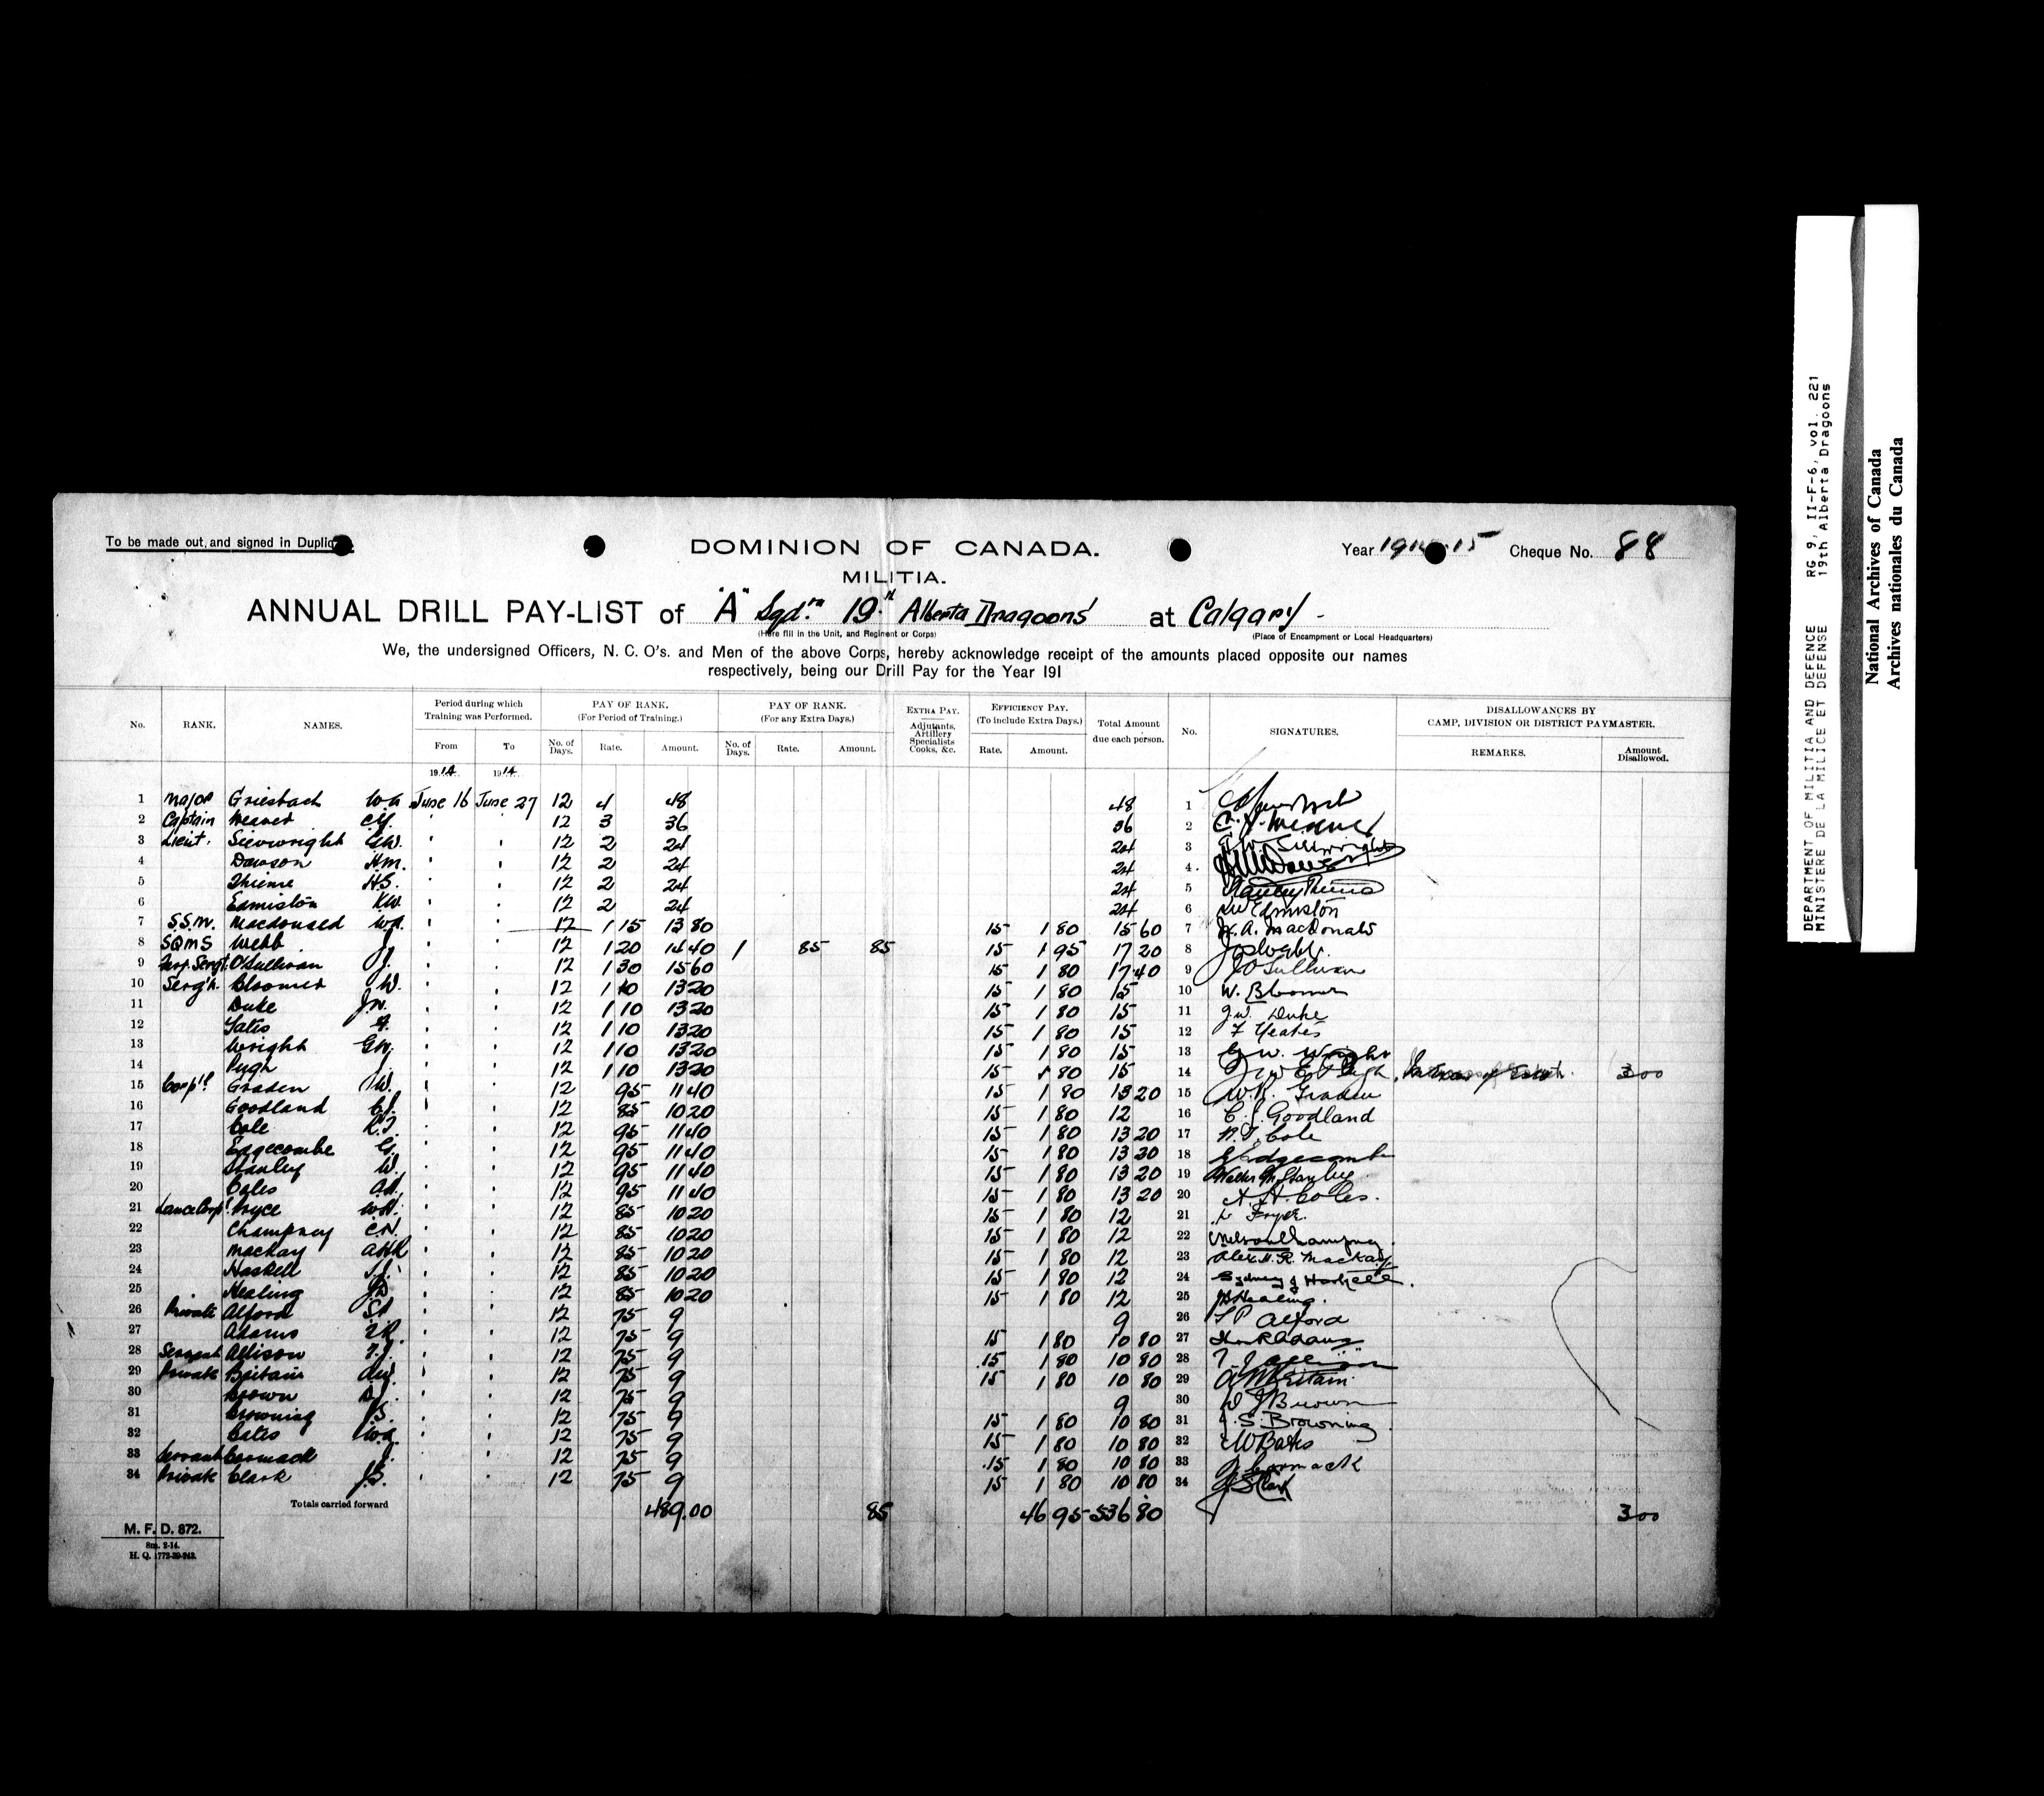 To be made out, and signed in Duplic
DOMINION OF CANADA.
Year 1914-15 Cheque No. 88
MILITIA.
ANNUAL DRILL PAY-LIST of "A" Sqdrn 19th Alberta Dragoons at Calgary -
(Here fill in the Unit, and Regiment or Corps) (Place of Encampment or Local Headquarters)
We, the undersigned Officers, N. C. O's. and Men of the above Corps, hereby acknowledge receipt of the amounts placed opposite our names
respectively, being our Drill Pay for the Year 191
No. RANK. NAMES. Period during which Training was Performed. From To PAY OF RANK. (For Period of Training.) No. of Days. Rate. Amount. PAY OF RANK. (For any Extra Days.) No. of Days. Rate. Amount. EXTRA PAY. Adjutants, Artillery Specialists Cooks, &c. EFFICIENCY PAY. (To include Extra Days.) Rate. Amount. Total Amount due each person. No. SIGNATURES. DISALLOWANCES BY CAMP, DIVISION OR DISTRICT PAYMASTER. REMARKS. Amount Disallowed.
1914 1914
1 Major Griesbach W.A. June 16 June 27 12 4 48 48 1
2 Captain Weaver C.Y. 12 3 36 36 2 C. Y. Weaver
3 Lieut. Sievwright G.W. 12 2 24 24 3 G W Sievwright
4 Dawson H.M. 12 2 24 24 4
5 Thieme H.S. 12 2 24 24 5
6 Edmiston K.W. 12 2 24 24 6 KW Edmiston
7 S.S.M. Macdonald W.A. 12 1 15 13 80 15 1 80 15 60 7 W. A. MacDonald
8 SQMS Webb J. 12 1 20 14 40 1 85 85 15 1 95 17 20 8 Jos Webb
9 O'Sullivan J. 12 1 30 15 60 15 1 80 17 40 9 J O'Sullivan
10 Serg't. Bloomer W. 12 1 10 13 20 15 1 80 15 10 W. Bloomer
11 Duke J.W. 12 1 10 13 20 15 1 80 15 11 J.W. Duke
12 Yates F. 12 1 10 13 20 15 1 80 15 12 F Yeates
13 Wright G.W. 12 1 10 13 20 15 1 80 15 13 G.W. Wright
14 Pugh J. 12 1 10 13 20 15 1 80 15 14 3 00
15 Corp'l Graden W. 12 95 11 40 15 1 80 13 20 15 W.R. Graden
16 Goodland C.J. 12 85 10 20 15 1 80 12 16 C. J. Goodland
17 Cole R.T. 12 95 11 40 15 1 80 13 20 17 R. T. Cole
18 Edgecombe G. 12 95 11 40 15 1 80 13 20 18 G Edgecombe
19 Stanley W. 12 95 11 40 15 1 80 13 20 19 Walter M. Stanley
20 Coles A.H. 12 95 11 40 15 1 80 13 20 20 A. H. Coles.
21 Lance Corpl. Fryce 12 85 10 20 15 1 80 12 21
22 Champney C.N. 12 85 10 20 15 1 80 12 22 Nelson Champney
23 Mackay A.H.R. 12 85 10 20 15 1 80 12 23 Alex. H. R. Mackay
24 Haskell S.J. 12 85 10 20 15 1 80 12 24 Sydney J Haskell.
25 Healing J.B. 12 85 10 20 15 1 80 12 25 JB Healing.
26 Private Alford S.P. 12 75 9 9 26 S P Alford
27 Adams I.R. 12 75 9 15 1 80 10 80 27
28 Servant Allison T.J. 12 75 9 15 1 80 10 80 28 T. J Allison
29 Private Britain A.W. 12 75 9 15 1 80 10 80 29 A W Britain
30 Brown D.J. 12 75 9 9 30 D J Brown
31 Browning J.S. 12 75 9 15 1 80 10 80 31 J. S. Browning
32 Bates W.A. 12 75 9 15 1 80 10 80 32 W Bates
33 Servant Cormack J. 12 75 9 15 1 80 10 80 33 J. Cormack
34 Private Clark J.S. 12 75 9 15 1 80 10 80 34 J S Clark
Totals carried forward 489.00 85 46 95 536 80 3 00
M. F. D. 872.
8m. 2-14.
H. Q. 1772-39-243.
DEPARTMENT OF MILITIA AND DEFENCE RG 9, II-F-6, vol. 221
MINISTERE DE LA MILICE ET DEFENSE 19th Alberta Dragoons
National Archives of Canada
Archives nationales du Canada